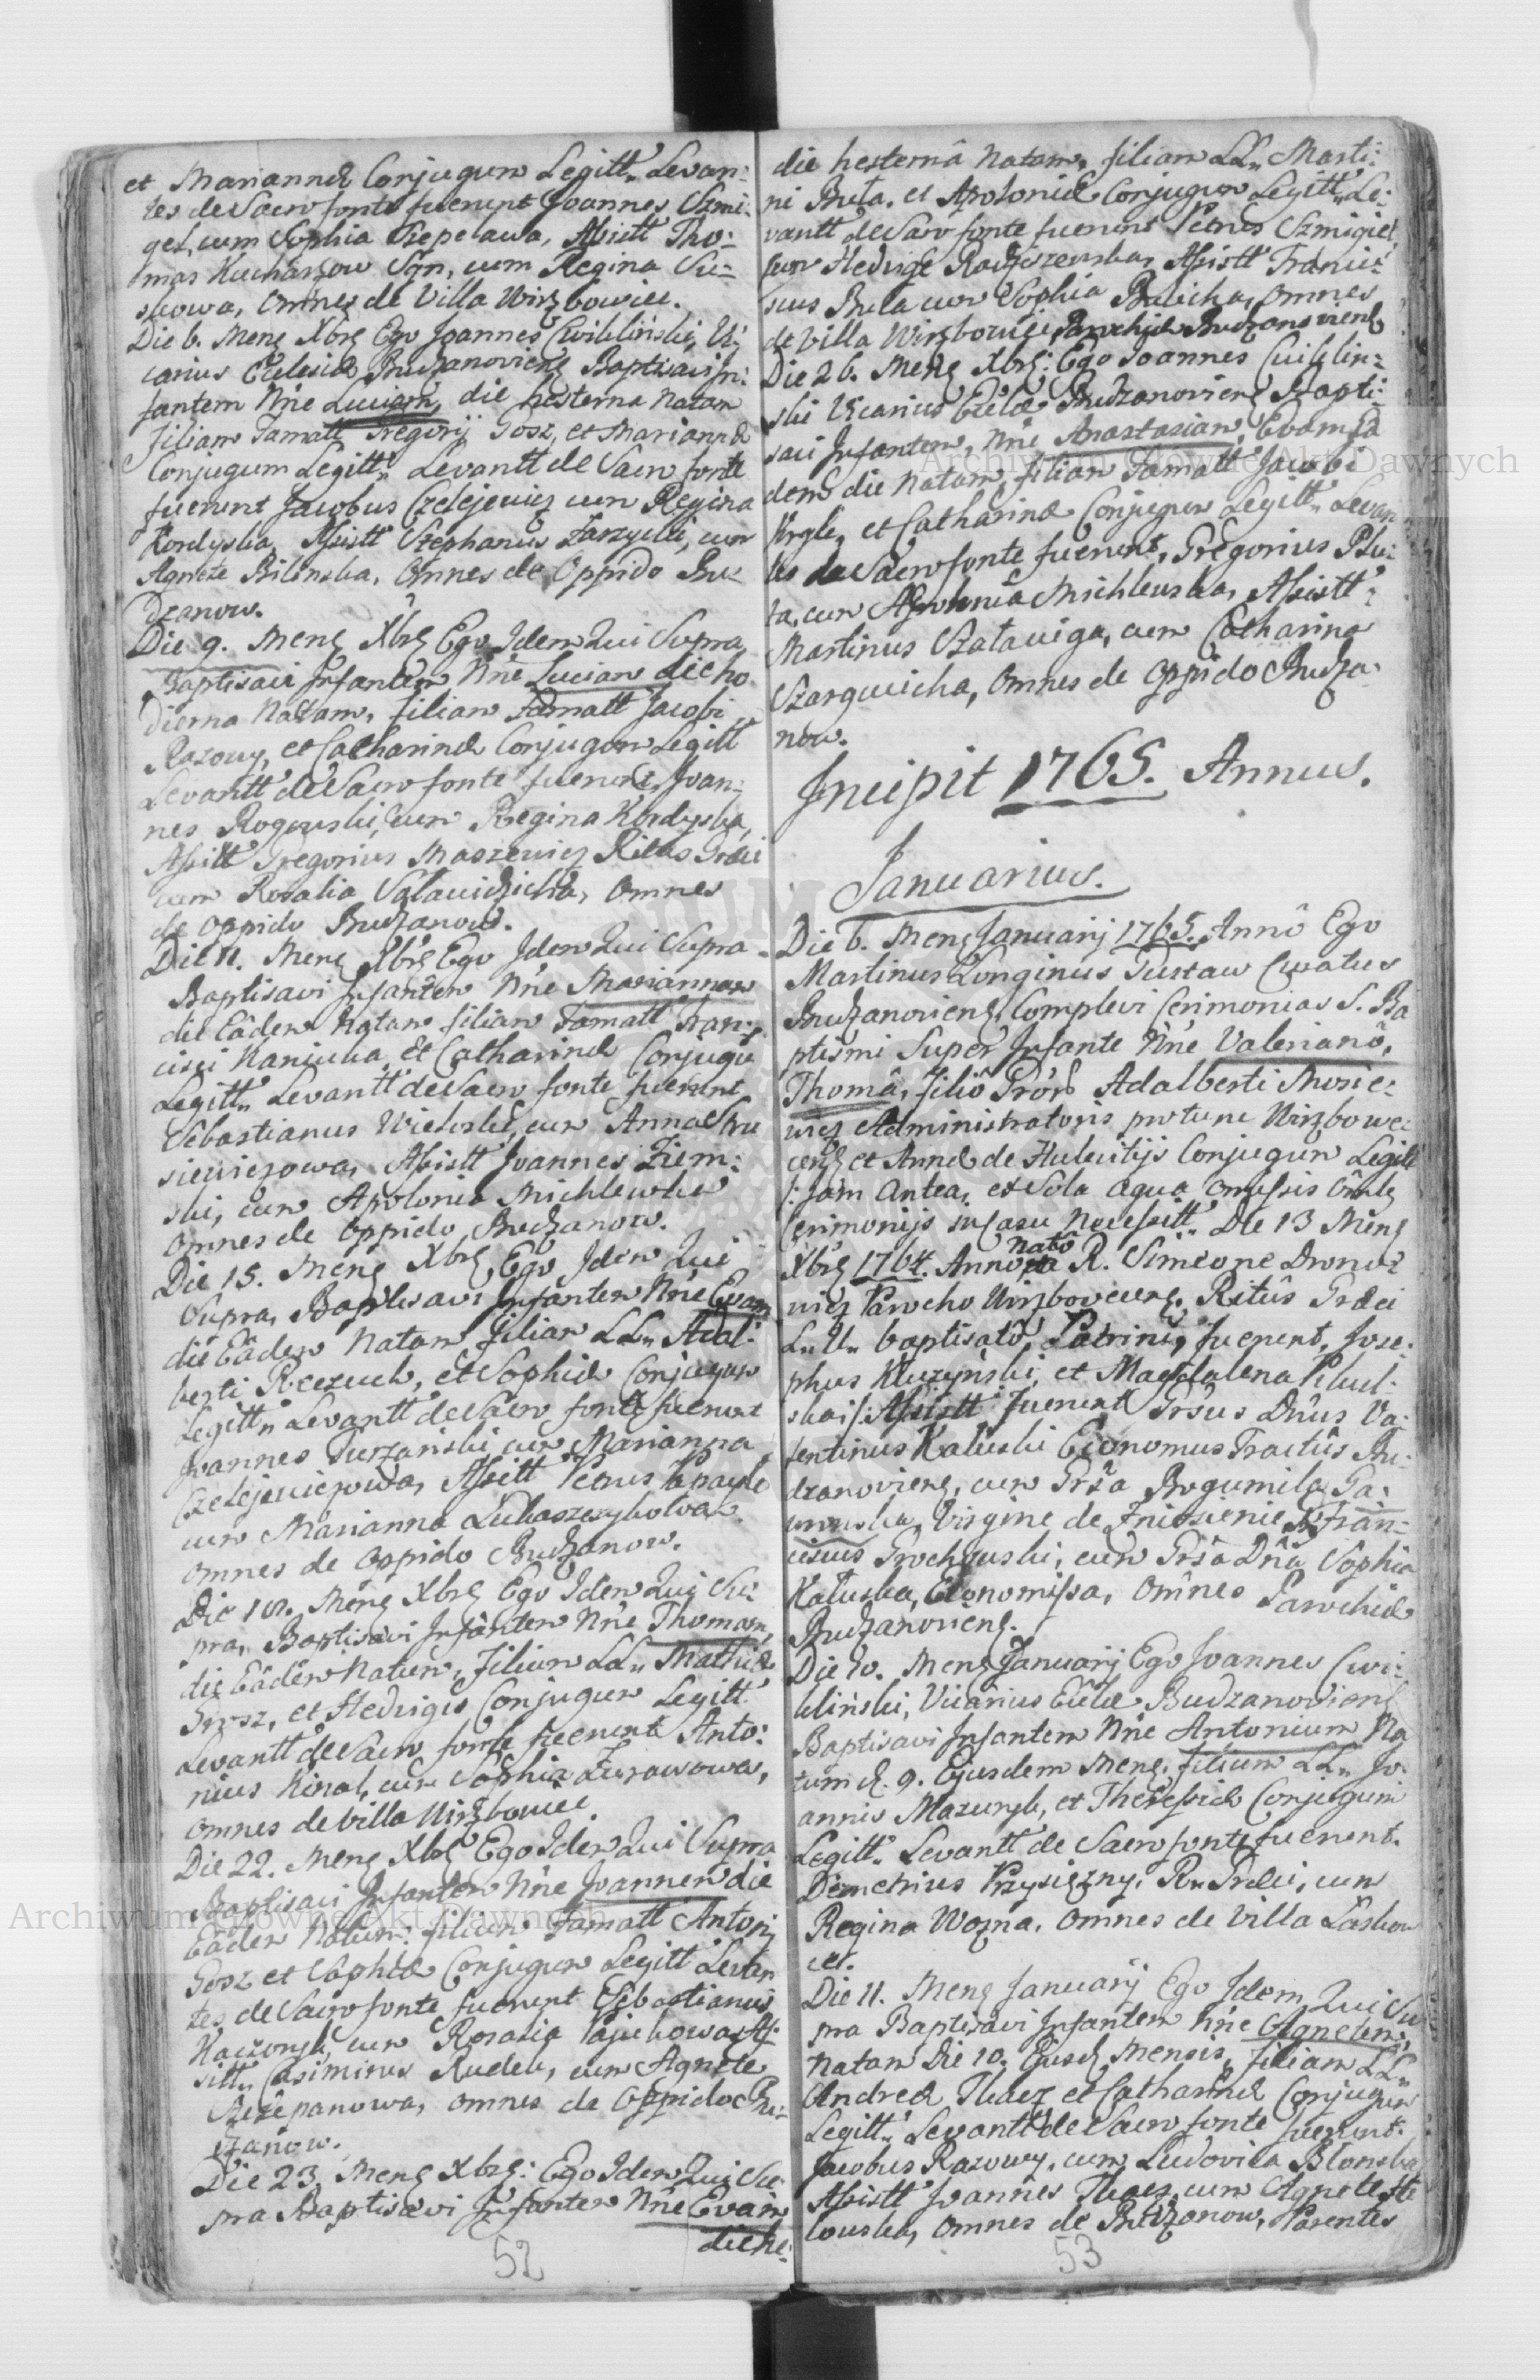 et Mariannæ Conjugum Legitt„ Levan:
tes de Sacro fonte fuerunt Joannes Szmi:
gel, cum Sophia Przepelawa, Assistt Tho:
mas Kucharzow Syn, cum Regina Su:
skowa, Omnes de Villa Wirzbowiec.
Die 6. Mens Xbris Ego Joannes Cwikliński, Vi:
carius Ecclesiæ Budzanoviens Baptisavi In:
fantem Nn̄e Luciam, die hesterna Natam
filiam Famatt Gregorij Gosz, et Mariannæ
Conjugum Legitt„ Levantt de Sacro fonte
fuerunt Jacobus Czelejewicz cum Regina
Kordyska, Assistt Stephanus Zarzycki, cum
Agnete Bilinska, Omnes de Oppido Bu:
dzanow.
Die 9. Mens Xbris Ego Idem Qui Supra
Baptisavi Infantem Nn̄e Luciam die ho
dierna Natam, filiam Famatt Jacobi
Razowy, et Catharinæ Conjugum Legitt
Levantt de Sacro fonte fuerunt, Joan:
nes Rogowski, cum Regina Kordyska,
Assistt Gregorius Maszewicz Ritus Græci
cum Rosalia Salawidzicha, Omnes
de Oppido Budzanow.
Die 11. Mens Xbris Ego Idem Qui Supra
Baptisavi Infantem Nn̄e Mariannam
die Eâdem Natam filiam Famatt Fran:
cisci Kaniuka, et Catharinæ Conjugū
Legitt„ Levantt de Sacro fonte fuerunt
Sebastianus Wichrski, cum Anna
siewiczowa, Assistt Joannes Ziem:
ski, cum Apolonia Michlewska
Omnes de Oppido Budzanow.
Die 15. Mens Xbris Ego Idem Qui
Supra, Baptisavi Infantem Nn̄e Evam
die Eâdem Natam filiam LL„ Adal:
berti Rzezuch, et Sophiæ Conjugum
Legitt„ Levantt de Sacro fonte fuerunt
Joannes Turzański cum Marianna
Czelejewiczowa, Assistt Petrus
cum Marianna Lukaszczykowa
Omnes de Oppido Budzanow.
Die 18. Mens Xbris Ego Idem Qui Su:
pra, Baptisavi Infantem Nn̄e Thomam,
die Eâdem Natum, filium LL„ Mathiæ
Grosz, et Hedvigis Conjugum Legitt
Levantt de Sacro fonte fuerunt Anto:
nius Kinal, cum Sophia Zurawowa,
Omnes de Villa Wirzbowiec.
Die 22. Mens Xbris Ego Idem Qui Supra
Baptisavi Infantem Nn̄e Joannem die
Eâdem Natum: filium Famatt Antonij
Gosz et Sophiæ Conjugum Legitt Levan
tes de Sacro fonte fuerunt Sebastianus
Kaczoryk, cum Rosalia Pajukowa As:
sistt„ Casimirus Rudek, cum Agnete
Szczepanowa, Omnes de Oppido Bu:
dzanow.
Die 23. Mens Xbris: Ego Idem Qui Su:
pra Baptisavi Infantem Nn̄e Evam
die he:
52
die hesternâ Natam, filiam LL„ Marti:
ni Buta, et Apoloniæ Conjugum Legitt„ Le:
vantt de Sacro fonte fuerunt Petrus Szmigiel
cum Hedvige Radziszewska, Assistt Francis:
cus Buta cum Sophia Bucicha, Omnes
de Villa Wirzbowiec, Parochiæ Budzanoviens
Die 26. Mens Xbris: Ego Joannes Cwiklin:
ski Vicarius Ecclæ Budzanoviens Bapti:
savi Infantem, Nn̄e Anastasiam, Evam Ea
dem die Natam, filiam Famatt Jacobi
et Catharinæ Conjugum Legitt„ Levan
tes de Sacro fonte fuerunt, Gregorius Plu:
ta, cum Apolonia Michlewska, Assistt:
Martinus Szataviga, cum Catharina
Szarguicha, Omnes de Oppido Budza:
now.
Incipit 1765. Annus.
Januarius.
Die 6. Mens Januarij 1765. Annô Ego
Martinus Longinus Pustaw Curatus
Budzanoviens, Complevi Cerimonias S. Ba
ptismi Super Infante Nn̄e Valerianô,
Thomâ, filiô Adalberti Mosie:
wicz Administratoris protunc Wirzbowe:
cens et Annæ de Hulewitijs Conjugum Legitt
/: jam Antea, ex Sola aqua omissis Omnibs
Cerimonijs in Casu Necessitt„ Die 13 Mens
Xbris 1764. Anno Natô a R. Simeone
wicz Parocho Wirzboviecens, Ritûs Græci
L„ U„ baptisatô, Patrinis fuerunt, Jose:
phus Kluczyński, et Magdalena
ska:/: Assistt fuerunt Grsus Dn̄us Va:
lentinus Kaluski Economus Tractûs Bu:
dzanoviens, cum Grsa Bogumila Ga:
wronska, Virgine de Zniesienie, et Fran:
ciscus Grochowski, cum Grsa Dn̄a Sophia
Kaluska, Economissa, Omnes Parochiæ
Budzanoviens.
Die 10. Mens Januarij Ego Joannes Cwi:
kliński, Vicarius Ecclæ Budzanoviens
Baptisavi Infantem Nn̄e Antonium Na
tum d. 9. Ejusdem Mens, filium LL„ Jo:
annis Mazuryk, et Theressiæ Conjugum
Legitt„ Levantt de Sacro fonte fuerunt.
Demetrius Przysiężny, R„ Græci, cum
Regina Wozna, Omnes de Villa Laskow
ce.
Die 11. Mens Januarij Ego Idem Qui Su
pra Baptisavi Infantem Nn̄e Agnetem,
Natam Die 10. Ejusd Mensis, filiam LL„
Andreæ Tkacz et Catharinæ Conjugum
Legitt„ Levantt de Sacro fonte fuerunt.
Jacobus Razowy, cum Ludovica Blonska
Assistt Joannes Tkacz, cum Agnete
lowska, Omnes de Budzanow, Parentes
53
Archiwum Główne Akt Dawnych
Archiwum Główne Akt Dawnych